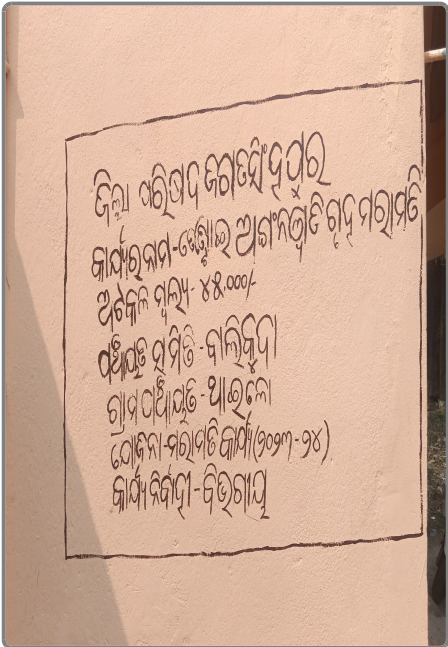 ଜିଲ୍ଲା ପରିଷଦ ଜଗତସିଂହପୁର
କାର୍ଯ୍ୟର ନାମ - ଅଙ୍ଗନୱାଡି ଗୃହ ମରାମତି
ଅଟକଳି ମୂଲ୍ୟ - ୪୫,୦୦୦/-
ପଞ୍ଚାୟତ ସମିତି - ବାଲିକୁଦା
ଗ୍ରାମ ପଞ୍ଚାୟତ - ଆଇଲୋ
ଯୋଜନା - ମରାମତି କାର୍ଯ୍ୟ (୨୦୨୩ - ୨୪)
କାର୍ଯ୍ୟ ନିର୍ବାହୀ - ବିଭାଗୀୟ